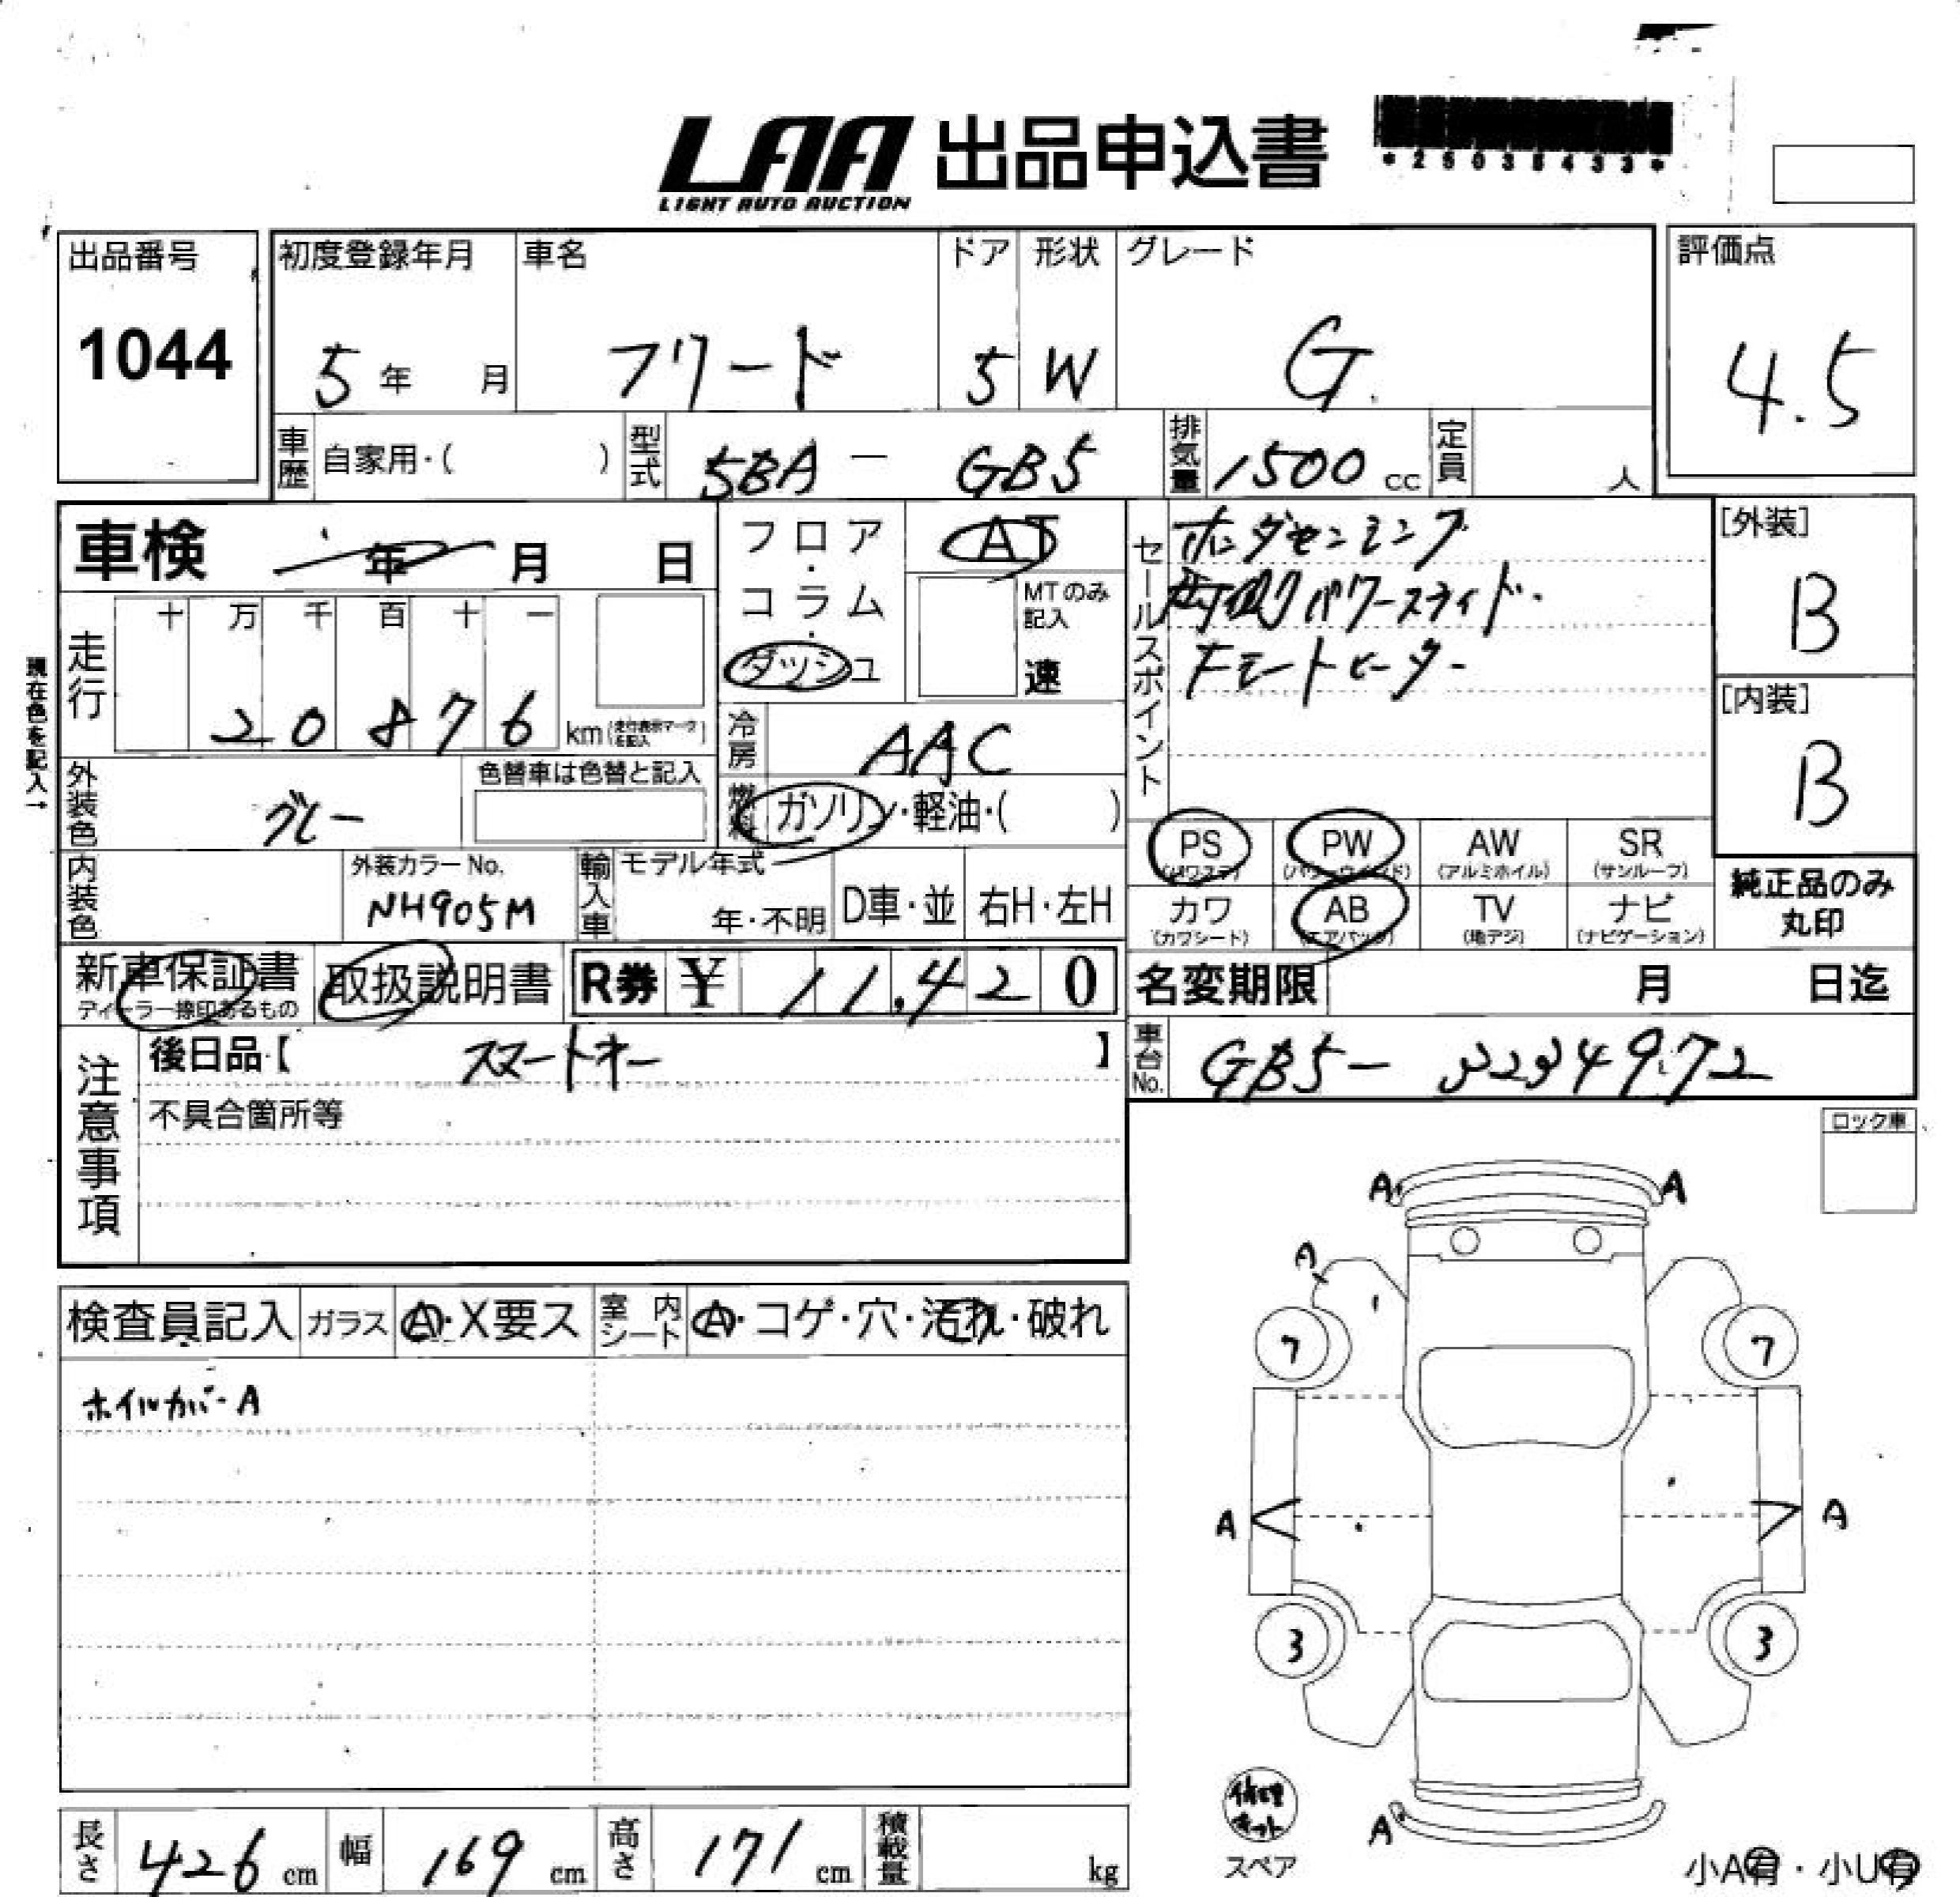 LAA 出品申込書
LIGHT AUTO AUCTION
出品番号
1044
初度登録年月
5 年 月
車名
フリード
ドア
5
形状
W
グレード
G
評価点
4.5
車歴 自家用・( )
型式 5BA - GB5
排気量 1500 cc
定員 人
車検 年 月 日
走行 十 万 千 百 十 一
2 0 8 7 6 km
現在色を記入→
外装色 グレー
色替車は色替と記入
内装色
外装カラーNo.
NH905M
フロア・コラム・ダッシュ
AT
MTのみ記入
速
冷房 AAC
燃料 ガソリン・軽油・( )
輸入車 モデル年式
年・不明
D車・並
右H・左H
セールスポイント
ホンダセンシング
両側パワースライド.
[外装]
B
[内装]
B
PS
(パワステ)
PW
(パワーウインド)
AW
(アルミホイル)
SR
(サンルーフ)
カワ
(カワシート)
AB
(エアバッグ)
TV
(地デジ)
ナビ
(ナビゲーション)
純正品のみ
丸印
新車保証書
ディーラー捺印あるもの
取扱説明書
R券 ¥ 11,420
名変期限 月 日迄
車台No. GB5- 3234972
注意事項
後日品【 スマートキー 】
不具合箇所等
ロック車
検査員記入
ガラス A・X要ス
室内シート A・コゲ・穴・汚れ・破れ
ホイルカバーA
A A
A
7 7
A A
3 3
A
修理キット
スペア
小A有・小U有
長さ 426 cm
幅 169 cm
高さ 171 cm
積載量 kg